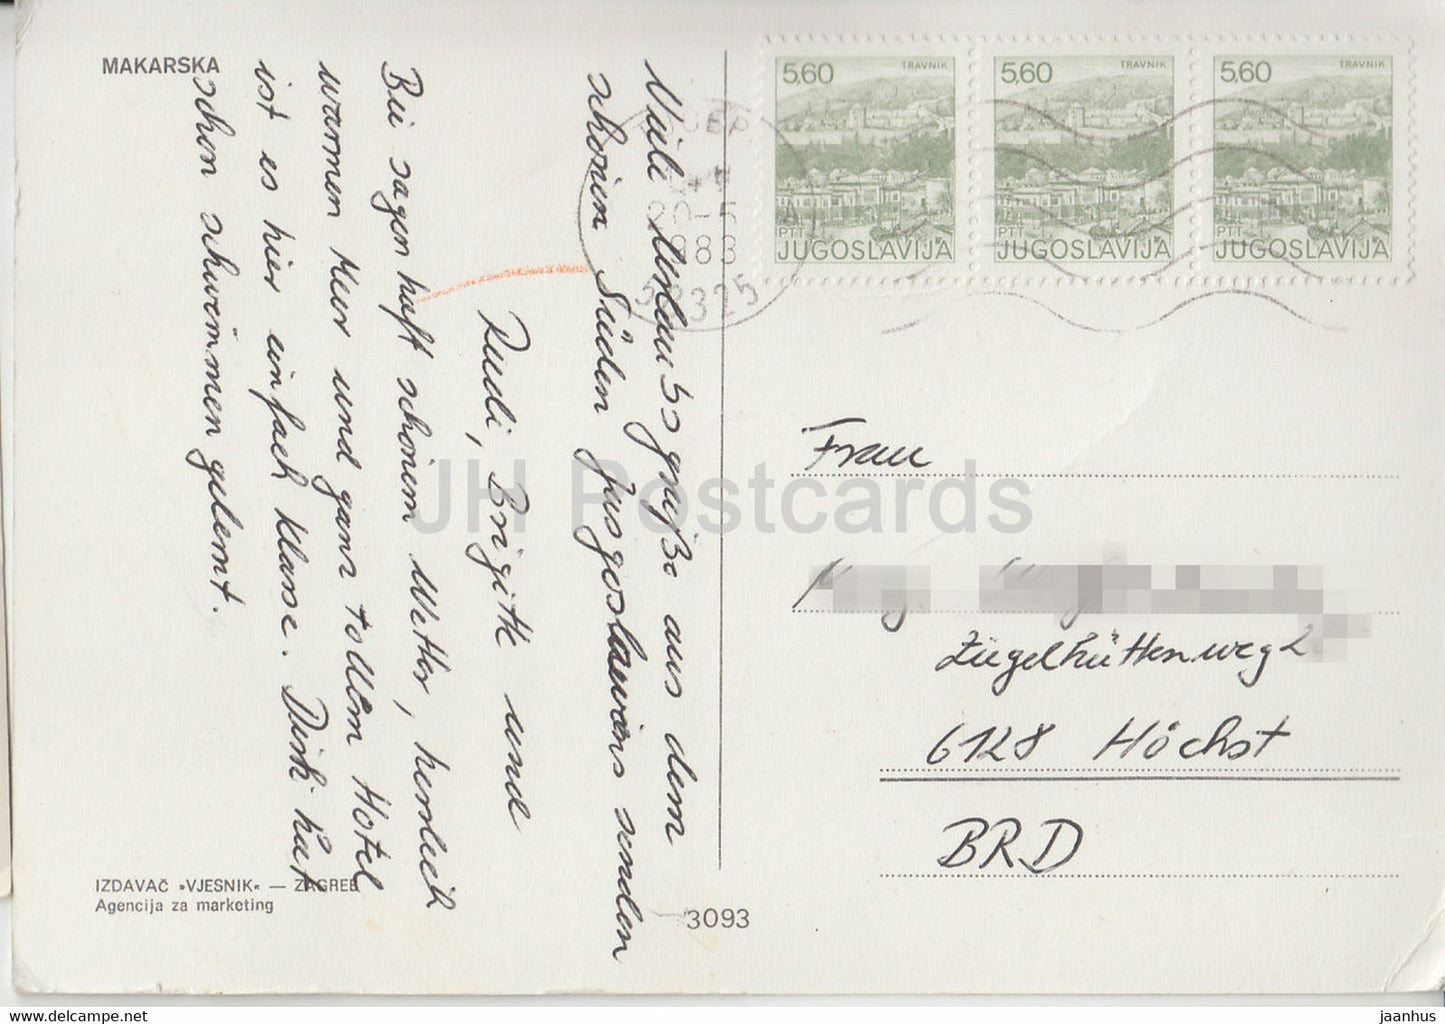 MAKARSKA
Viele Urlaubsgrüße aus dem
schönen Süden Jusgoslawiens senden
Rudi, Brigitte und
Bei sagenhaft schönem Wetter, herrlich
warmen Meer und ganz tollem Hotel
ist es hier einfach klasse. Dirk hat
schon schwimmen gelernt.
IZDAVAČ »VJESNIK« — ZAGREB
Agencija za marketing
3093
5,60 TRAVNIK
PTT
JUGOSLAVIJA
5,60 TRAVNIK
PTT
JUGOSLAVIJA
5,60 TRAVNIK
PTT
JUGOSLAVIJA
58325
Frau
Zügelhüttenweg
6128 Höchst
BRD
JH Postcards
www.delcampe.net
jaanhus